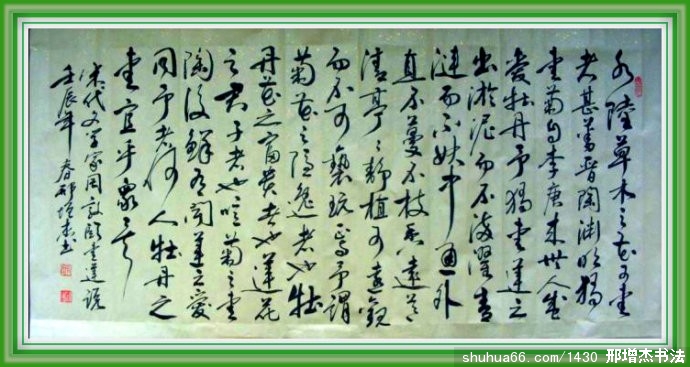 水陸草木之花可愛
者甚蕃晋陶渊明獨
愛菊自李唐来世人盛
愛牡丹予獨愛蓮之
出淤泥而不染濯清
漣而不妖中通外
直不蔓不枝香遠益
清亭亭静植可遠觀
而不可褻玩焉予謂
菊花之隐逸者也牡
丹花之富貴者也蓮花
之君子者也噫菊之愛
陶後鲜有闻蓮之愛
同予者何人牡丹之
愛宜乎衆矣
宋代文学家周敦颐愛蓮説
壬辰年春邢增杰书
shuhua66.com/1430 邢增杰书法